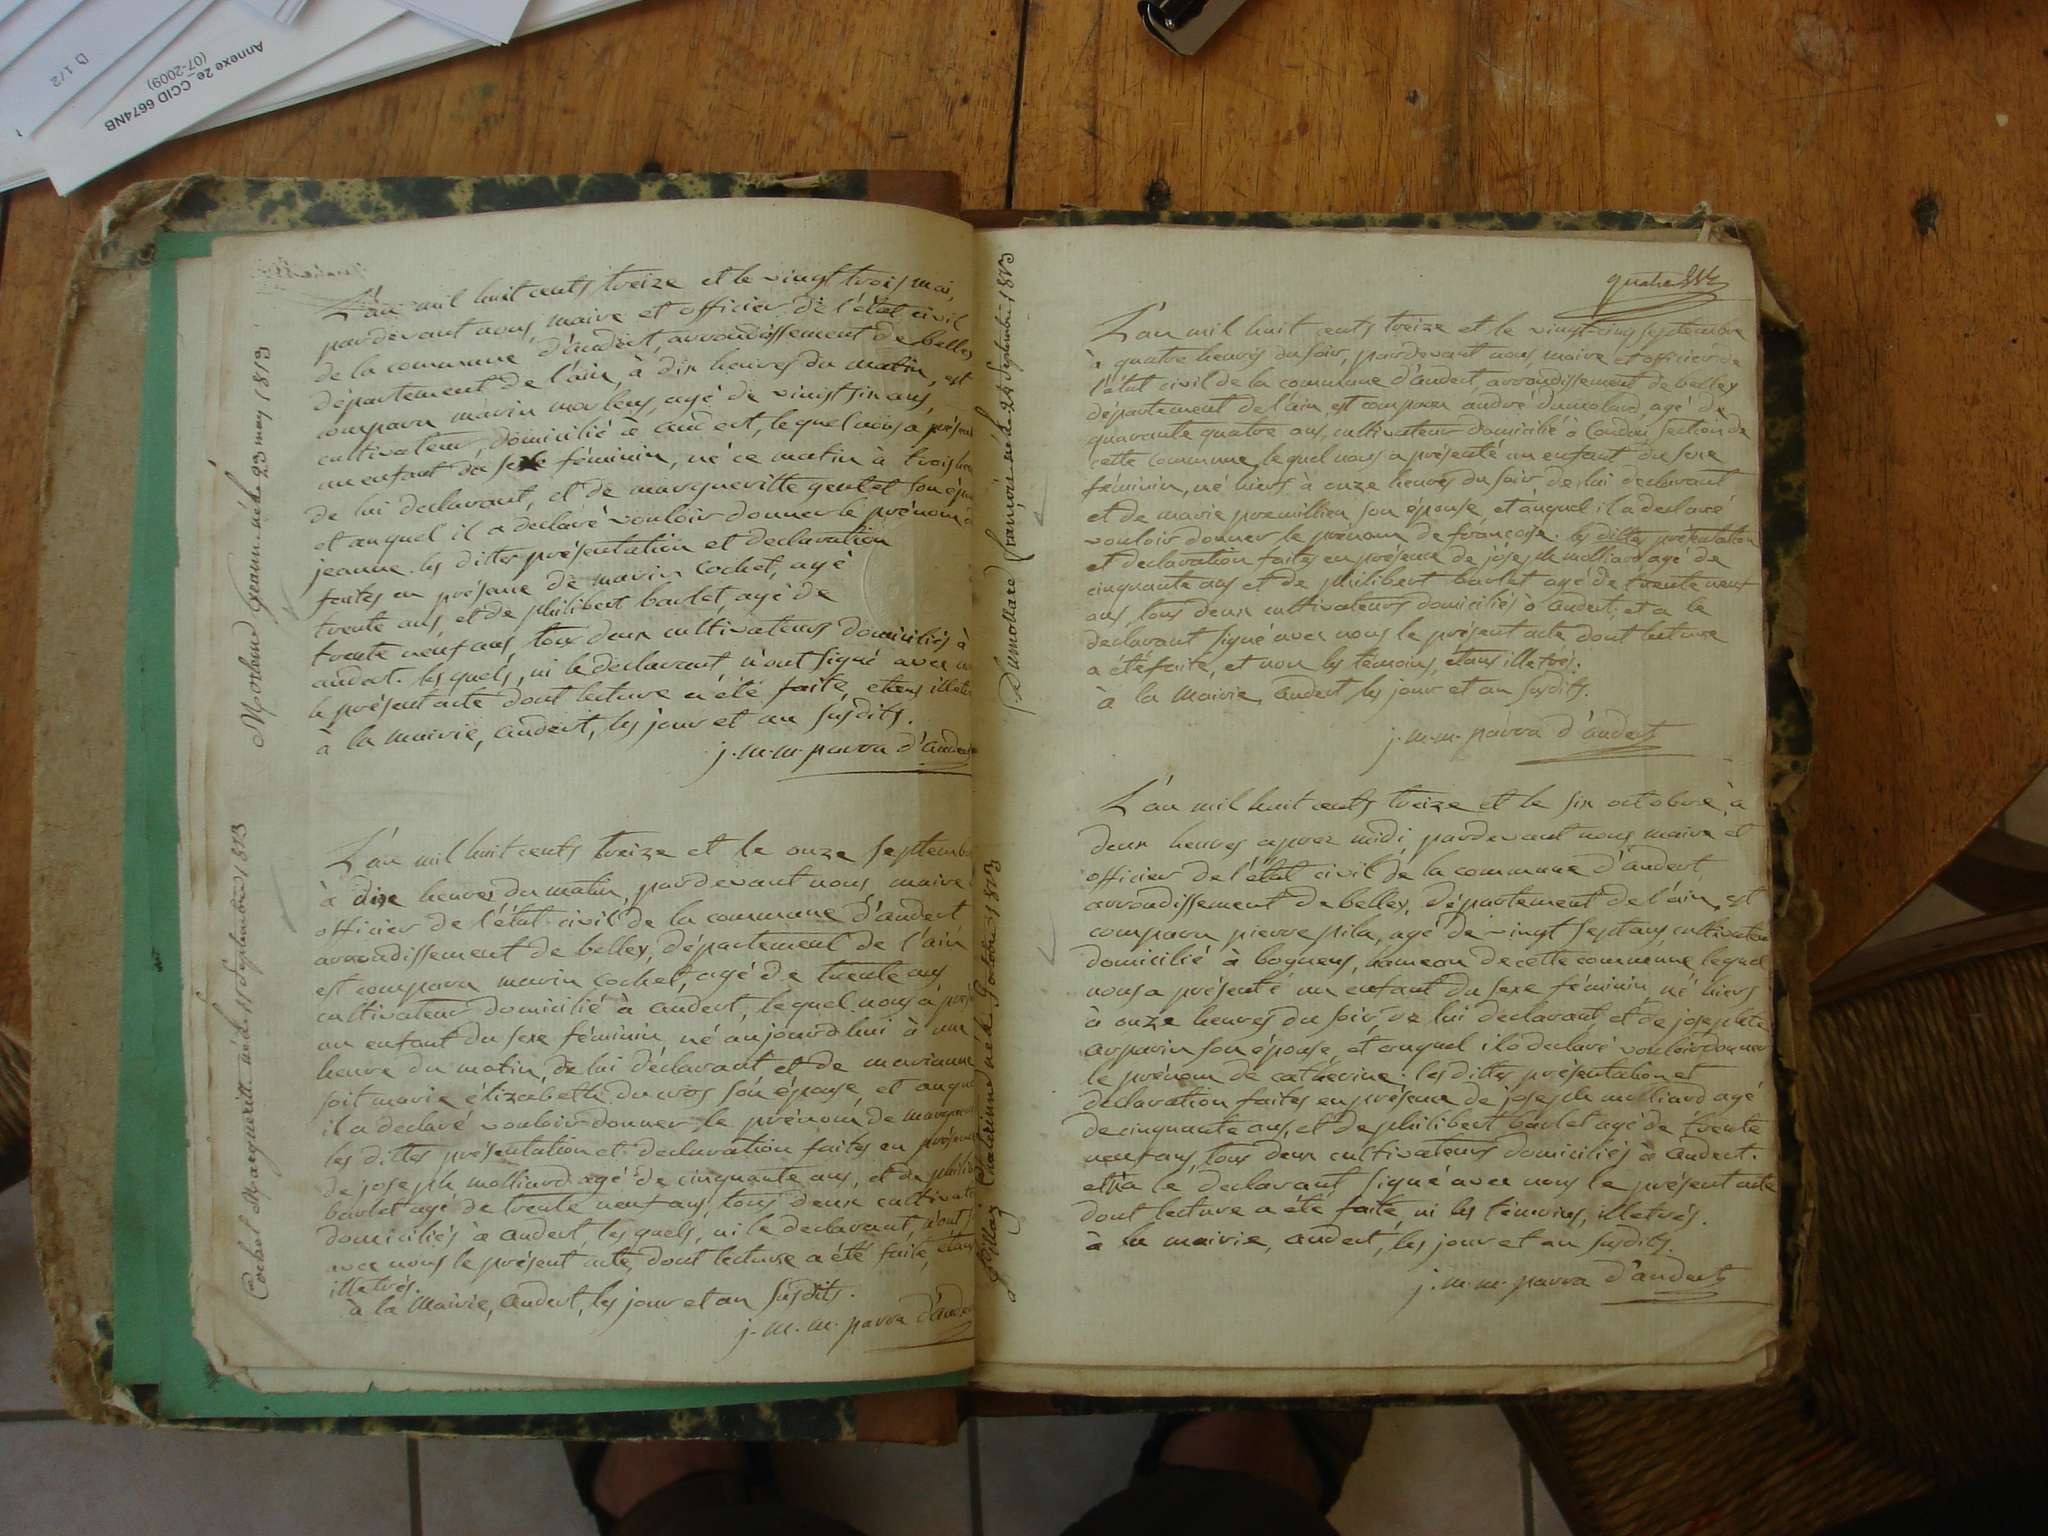 Annexe 2e_CCID 6674NB
(07-2009)
D 1/2
Morlens Jeanne née le 23 may 1813
L'an mil huit cents treize et le vingt trois mai,
pardevant nous, maire et officier de l'état civil
de la commune d'andert, arrondissement de belley
département de l'ain, à dix heures du matin, est
comparu marin morlens, agé de vingt six ans,
cultivateur, domicilié à andert, lequel nous a présen
un enfant du sexe féminin, né ce matin à trois heu
de lui declarant, et de margueritte gentet son épou
et auquel il a declaré vouloir donner le prénom d
jeanne. les dittes présentation et declaration
faites en présence de marin Cochet, agé
trente ans, et de philibert barlet, agé de
trente neuf ans, tous deux cultivateurs domiciliés à
andert. les quels, ni le declarant n'ont signé avec n
le présent acte dont lecture a été faite, etans illetr
à la mairie, andert, les jour et an susdits.
j. m. m. parra d'andert
Cochet Margueritte née le 11 Septembre 1813
L'an mil huit cents treize et le onze septembre
à dix heures du matin, pardevant nous maire
officier de l'état civil de la commune d'andert
arrondissement de belley, département de l'ain
est comparu marin cochet, agé de trente ans
cultivateur domicilié à andert, lequel nous a prés
un enfant du sexe féminin né aujourd'hui à une
heure du matin, de lui déclarant et de marianne
soit marie élizabeth ducros son épouse, et auquel
il a declaré vouloir donner le prénom de margue
les dittes présentation et declaration faites en présence
de joseph molliard agé de cinquante ans, et de philib
barlet agé de trente neuf ans, tous deux cultivate
domiciliés à andert, les quels, ni le declarant, n'ont s
avec nous le présent acte, dont lecture a été faite, étans
illetrés.
à la Mairie, andert, les jour et an susdits.
j. m. m. parra d'ander
quatre
Dumollard françoise née le 24 Septembre 1813
L'an mil huit cents treize et le vingt-cinq septembre
à quatre heures du soir, pardevant nous, maire et officier de
l'état civil de la commune d'andert, arrondissement de belley
département de l'ain, est comparu andré dumolard, agé de
quarante quatre ans, cultivateur domicilié à Condon, section de
cette commune, lequel nous a présenté un enfant du sexe
féminin, né hiers à onze heures du soir de lui declarant
et de marie premillieu son épouse, et auquel il a declaré
vouloir donner le prénom de françoise. les dittes présentation
et declaration faites en présence de joseph molliard agé de
cinquante ans et de philibert barlet agé de trente neuf
ans, tous deux cultivateurs domiciliés à andert; et a le
declarant signé avec nous le présent acte dont lecture
a été faite, et non les témoins, étans illetrés.
à la Mairie, andert, les jour et an susdits.
j. m. m. parra d'andert
pillaz Chaterinne née le 5 octobre 1813
L'an mil huit cents treize et le six octobre, à
deux heures aprez midi, pardevant nous maire et
officier de l'état civil de la commune d'andert,
arrondissement de belley, département de l'ain, est
comparu pierre pila, agé de vingt sept ans, cultivateur
domicilié à bognens, hameau de cette commune, lequel
nous a présenté un enfant du sexe féminin, né hiers
à onze heures du soir, de lui declarant et de josephte
arparin son épouse, et auquel il a declaré vouloir donner
le prénom de catherine. les dittes présentation et
declaration faites en présence de joseph molliard agé
de cinquante ans, et de philibert barlet agé de trente
neuf ans, tous deux cultivateurs domiciliés à andert.
et a le declarant signé avec nous le présent acte
dont lecture a été faite, ni les témoins, illetrés.
à la mairie, andert, les jour et an susdits.
j. m. m. parra d'andert